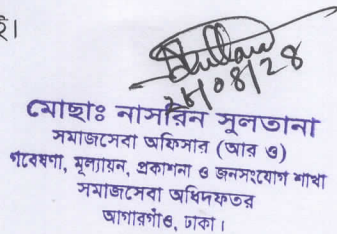 ই।
২৮/০৪/২৪
মোছাঃ নাসরিন সুলতানা
সমাজসেবা অফিসার (আর ও)
গবেষণা, মূল্যায়ন, প্রকাশনা ও জনসংযোগ শাখা
সমাজসেবা অধিদফতর
আগারগাঁও, ঢাকা।